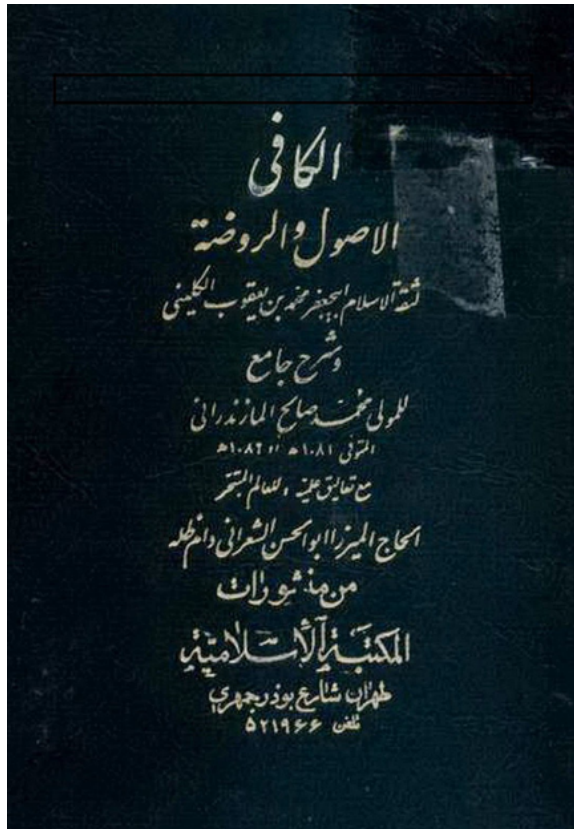 الكافى
الاصول والروضة
لثقة الاسلام ابيجعفر محمد بن يعقوب الكلينى
وشرح جامع
للمولى محمد صالح المازندرانى
المتوفى ١٠٨١ ه او ١٠٨٦ ه
مع تعاليق علميه ، للعالم المتبحر
الحاج الميرزا ابوالحسن الشعرانى دام ظله
من منشورات
المكتبة الأسلامية
طهران شارع بوذرجمهرى
تلفن ٥٢١٩٦٦